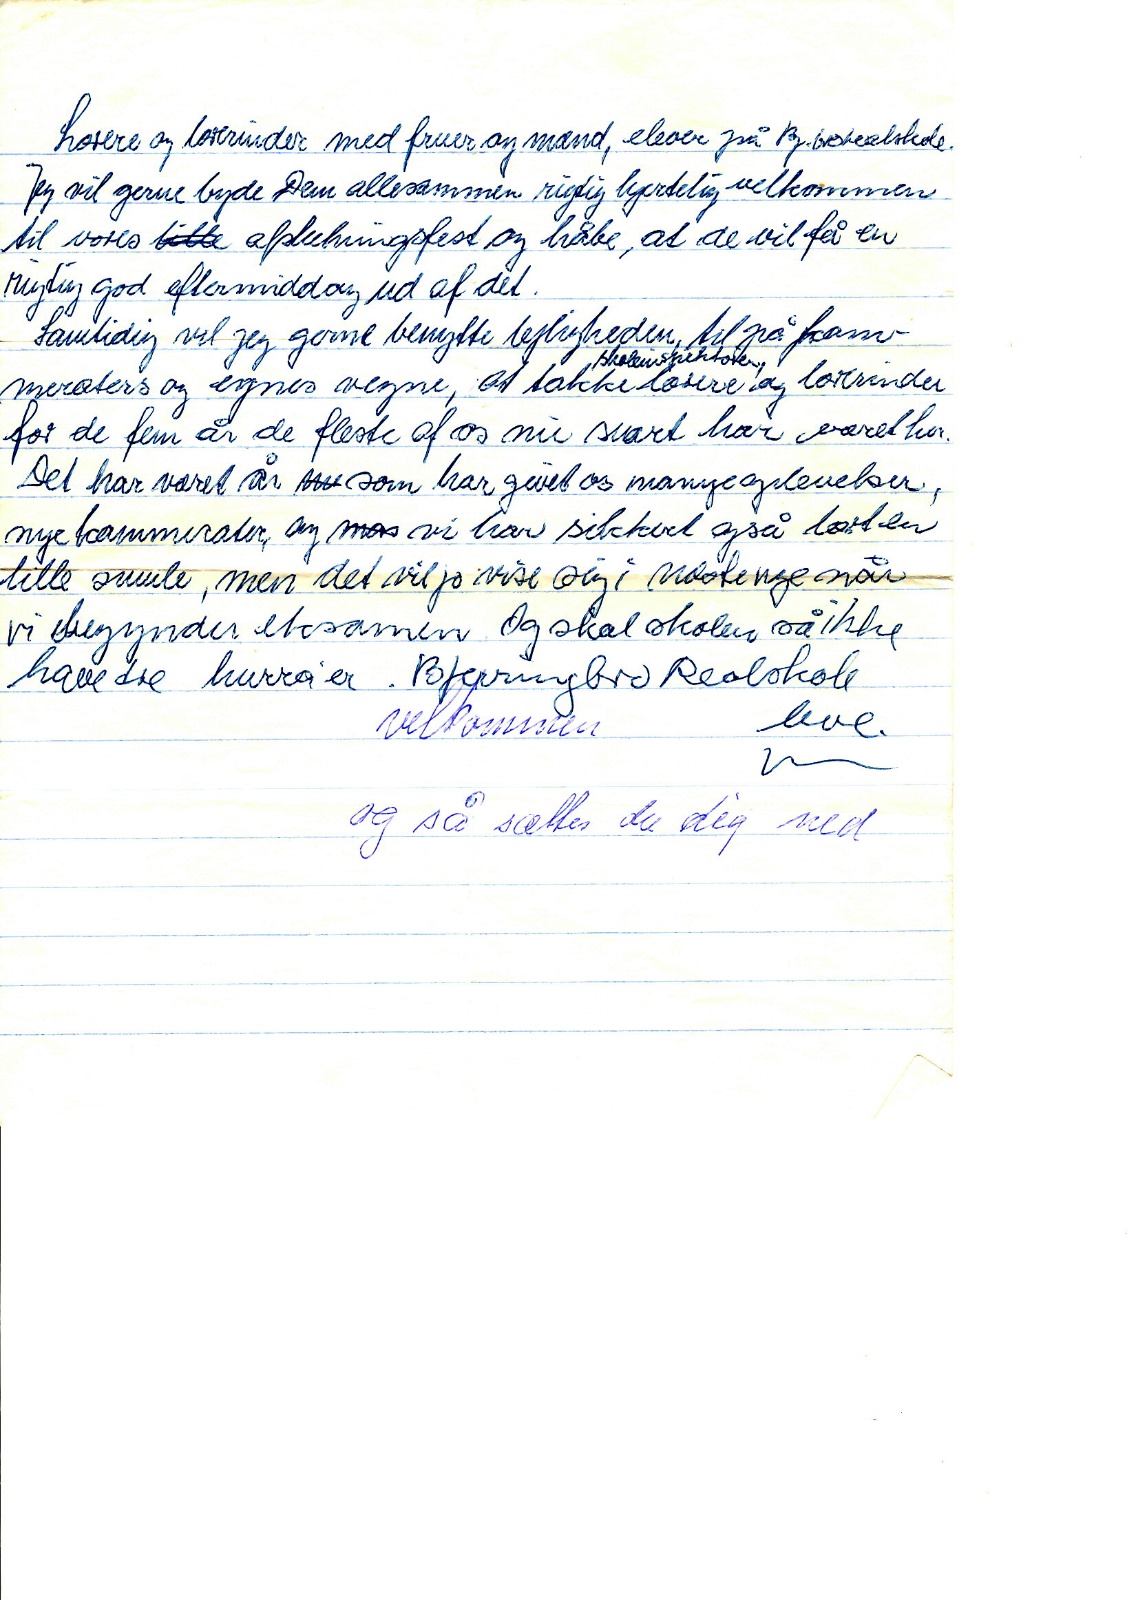 Lærere og lærerinder med fruer og mænd, elever på Bj.bro realskole.
Jeg vil gerne byde Dem allesammen rigtig hjertelig velkommen
til vores lille afslutningsfest og håbe, at de vil få en
rigtig god eftermiddag ud af det.
Samtidig vil jeg gerne benytte lejligheden, til på kam-
skoleinspektøren,
meraters og egnes vegne, at takke lærere og lærerinder
for de fem år de fleste af os nu snart har været her.
Det har været år nu som har givet os mange oplevelser,
nye kammerater, og vi har sikkert også lært en
lille smule, men det vil jo vise sig i når
vi begynder eksamen Og skal skolen så ikke
have tre hurra'er. Bjerringbro Realskole
velkommen leve.
og så sættes du dig ned